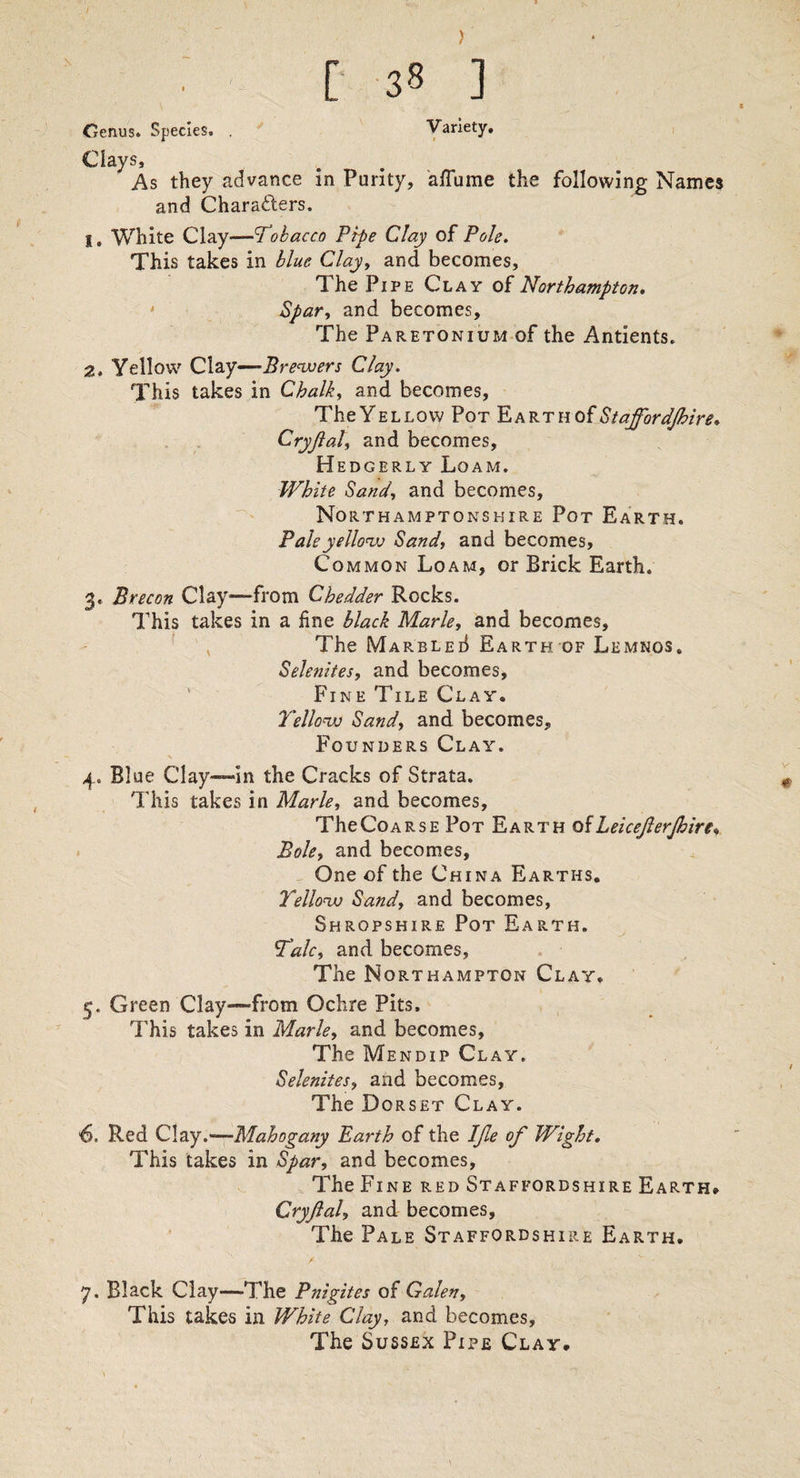 [ 38 ]
Genus. Species. Variety.
Clays,
As they advance in Purity, aſſume the following Names
and Characters.
1. White Clay—Tobacco Pipe Clay of Pole.
This takes in blue Clay, and becomes,
The Pipe Clay of Northampton.
Spar, and becomes,
The Paretonium of the Antients.
2. Yellow Clay—Brewers Clay.
This takes in Chalk, and becomes,
The Yellow Pot Earth of Staffordſhire.
Cryſtal, and becomes,
Hedgerly Loam.
White Sand, and becomes,
Northamptonshire Pot Earth.
Pale yellow Sand, and becomes,
Common Loam, or Brick Earth.
3. Brecon Clay—from Chedder Rocks.
This takes in a fine black Marle, and becomes,
The Marbled Earth of Lemnos.
Selenites, and becomes,
Fine Tile Clay.
Yellow Sand, and becomes,
Founders Clay.
4. Blue Clay—in the Cracks of Strata.
This takes in Marle, and becomes,
The Coarse Pot Earth of Leiceſterſhire.
Bole, and becomes,
One of the China Earths.
Yellow Sand, and becomes,
Shropshire Pot Earth.
Talc, and becomes,
The Northampton Clay.
5. Green Clay—from Ochre Pits.
This takes in Marle, and becomes,
The Mendip Clay.
Selenites, and becomes,
The Dorset Clay.
6. Red Clay.—Mahogany Earth of the Iſle of Wight.
This takes in Spar, and becomes,
The Fine red Staffordshire Earth.
Cryſtal, and becomes,
The Pale Staffordshire Earth.
7. Black Clay—The Pnigites of Galen,
This takes in White Clay, and becomes,
The Sussex Pipe Clay.